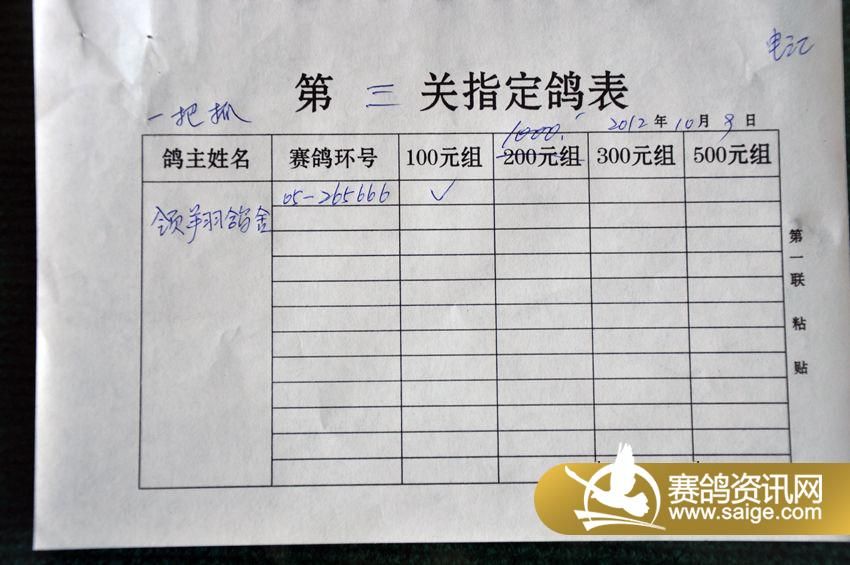 电汇
第 三 关指定鸽表
一把抓
2012年10月9日
1000.
鸽主姓名 赛鸽环号 100元组 200元组 300元组 500元组
领翔鸽舍 05-265666 ✓
第一联 粘 贴
赛鸽资讯网
www.saige.com